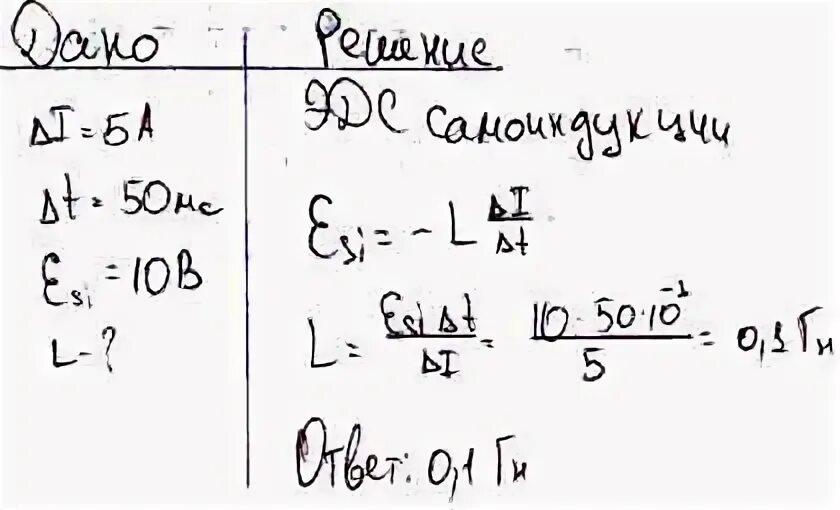 Дано
ΔI = 5А
Δt = 50мс
Ɛsi = 10В
L - ?
Решение
ЭДС самоиндукции
Ɛsi = - L ΔI/Δt
L = Ɛsi Δt/ΔI = 10·50·10⁻³/5 = 0,1 Гн
Ответ: 0,1 Гн